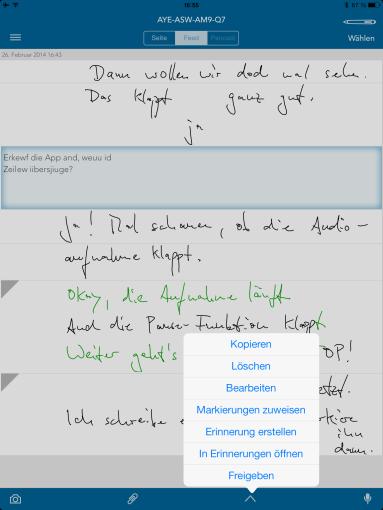 16:55
67 %
AYE-ASW-AM9-Q7
Seite Feed Pencast
Wählen
26. Februar 2014 16:43
Dann wollen wir doch mal sehen.
Das klappt ganz gut.
ja
Erkewf die App and, weuu id
Zeilew iibersjiuge?
Ja! Mal schauen, ob die Audio-
aufnahme klappt.
Okay, die Aufnahme läuft
Auch die Pause-Funktion klappt
Weiter geht's
OP!
Kopieren
Löschen
Bearbeiten
Markierungen zuweisen
Erinnerung erstellen
In Erinnerungen öffnen
Freigeben
Ich schreibe
ihn
dann.